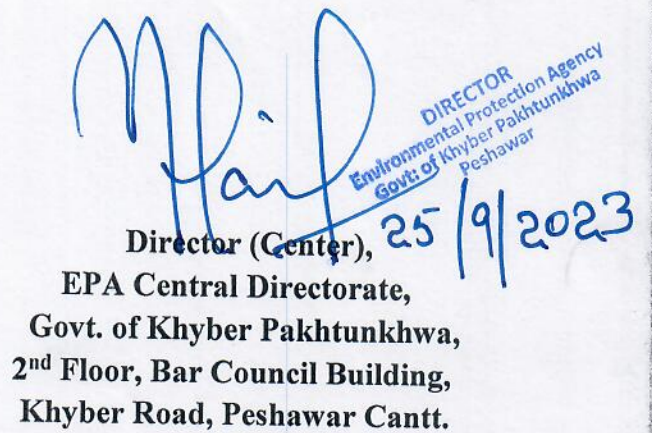 DIRECTOR
Environmental Protection Agency
Govt: of Khyber Pakhtunkhwa
Peshawar
25/9/2023
Director (Center),
EPA Central Directorate,
Govt. of Khyber Pakhtunkhwa,
2nd Floor, Bar Council Building,
Khyber Road, Peshawar Cantt.